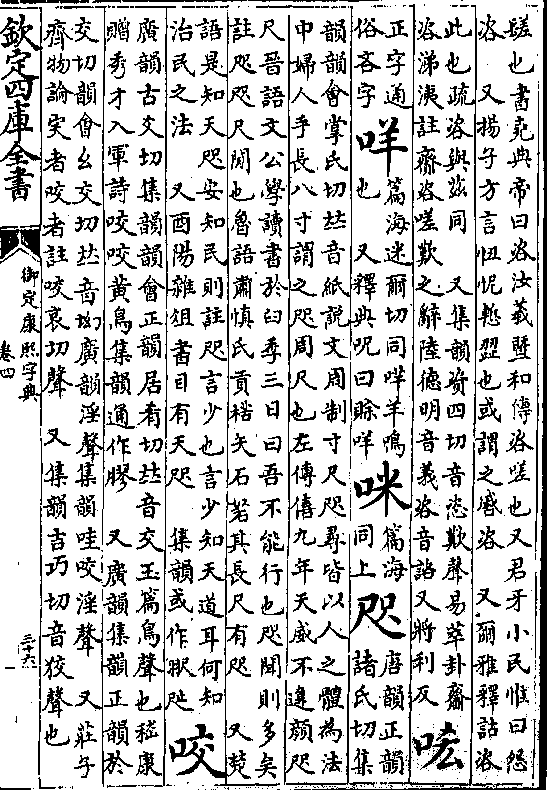 嗟也書堯典帝曰咨汝羲曁和傳咨嗟也又君牙小民惟曰怨
咨　又揚子方言忸怩慙歰也或謂之慼咨　又爾雅釋詁咨
此也疏咨與茲同　又集韻資四切音恣歎聲易萃卦齎
咨涕洟註齎咨嗟歎之辭陸德明音義咨音諮又將利反
正字通
俗吝字
咩
篇海迷爾切同哶羊鳴
也　又釋典呪曰賖咩
咪
篇海
同上
咫
唐韻正韻
諸氏切集
韻韻會掌氏切𠀤音紙說文周制寸尺咫尋皆以人之體為法
中婦人手長八寸謂之咫周尺也左傳僖九年天威不違顏咫
尺晉語文公學讀書於臼季三日曰吾不能行也咫聞則多矣
註咫咫尺間也魯語肅慎氏貢楛矢石砮其長尺有咫　又楚
語是知天咫安知民則註咫言少也言少知天道耳何知
治民之法　又酉陽雜俎書目有天咫　集韻或作
咬
廣韻古爻切集韻韻會正韻居肴切𠀤音交玉篇鳥聲也嵇康
贈秀才入軍詩咬咬黃鳥集韻通作膠　又廣韻集韻正韻於
交切韻會幺交切𠀤音坳廣韻淫聲集韻哇咬淫聲　又莊子
齊物論宎者咬者註咬哀切聲　又集韻吉巧切音狡聲也
欽定四庫全書
御定康熙字典
卷四
三十六